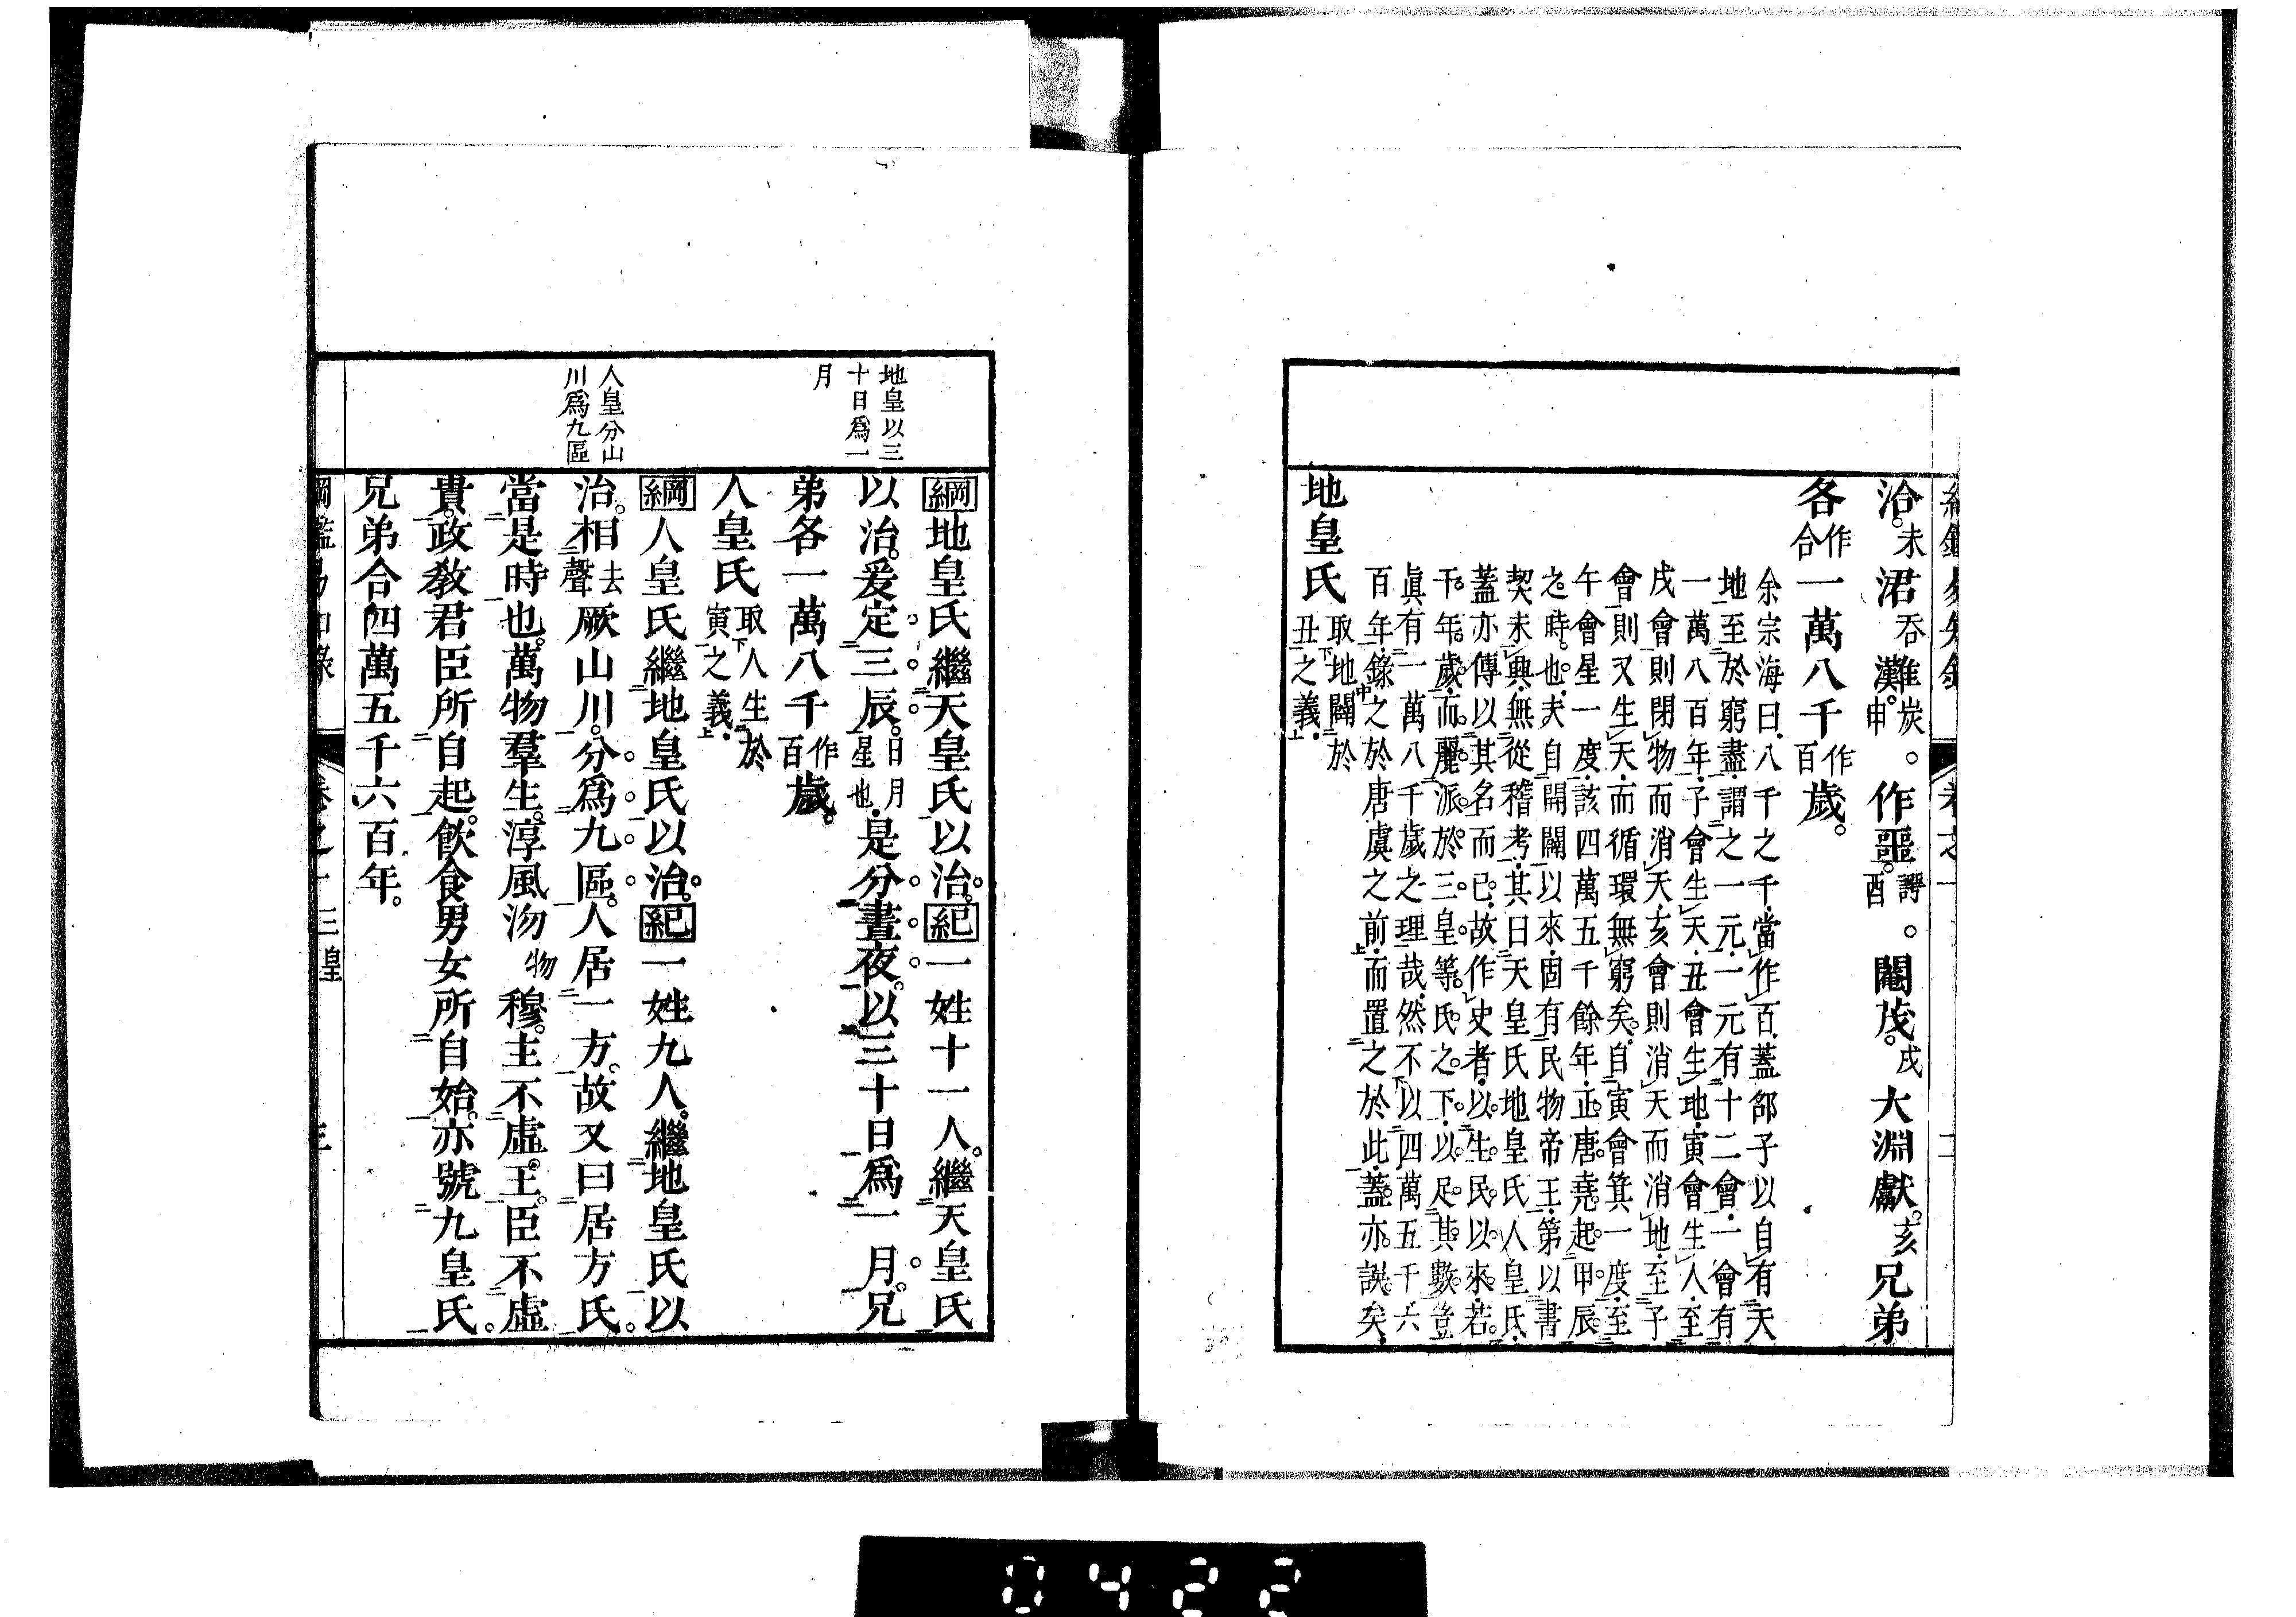 洽。未涒吞灘。炭申。作噩。諤酉。閹茂。戌大淵獻。亥兄弟
各作合一萬八千作百歲。
余宗海曰八千之千當作百蓋邵子以自有天
地至於窮盡謂之一元一元有十二會一會有
一萬八百年子會生天丑會生地寅會生人至
戌會則閉物而消天亥會則消天而消地至子
會則又生天而循環無窮矣自寅會箕一度至
午會星一度該四萬五千餘年正唐堯起甲辰
之時也夫自開闢以來固有民物帝王第以書
契未興無從稽考其曰天皇氏地皇氏人皇氏
蓋亦傳以其名而已故作史者以生民以來若
干年歲而麗派於三皇等氏之下以足其數豈
眞有一萬八千歲之理哉然不以四萬五千六
百年錄之於唐虞之前而置之於此蓋亦誤矣
地皇氏取地闢於丑之義
地皇以三
十日爲一
月
人皇分山
川爲九區
綱地皇氏繼天皇氏以治。紀一姓十一人。繼天皇氏
以治。爰定三辰。日月星也是分晝夜。以三十日爲一月。兄
弟各一萬八千作百歲。
人皇氏取人生於寅之義
綱人皇氏繼地皇氏以治。紀一姓九人。繼地皇氏以
治。相去聲厥山川。分爲九區。人居一方。故又曰居方氏。
當是時也。萬物羣生。淳風沕物穆。主不虛王。臣不虛
貴。政教君臣所自起。飲食男女所自始。亦號九皇氏。
兄弟合四萬五千六百年。
綱鑑易知錄 卷之一 三皇 三